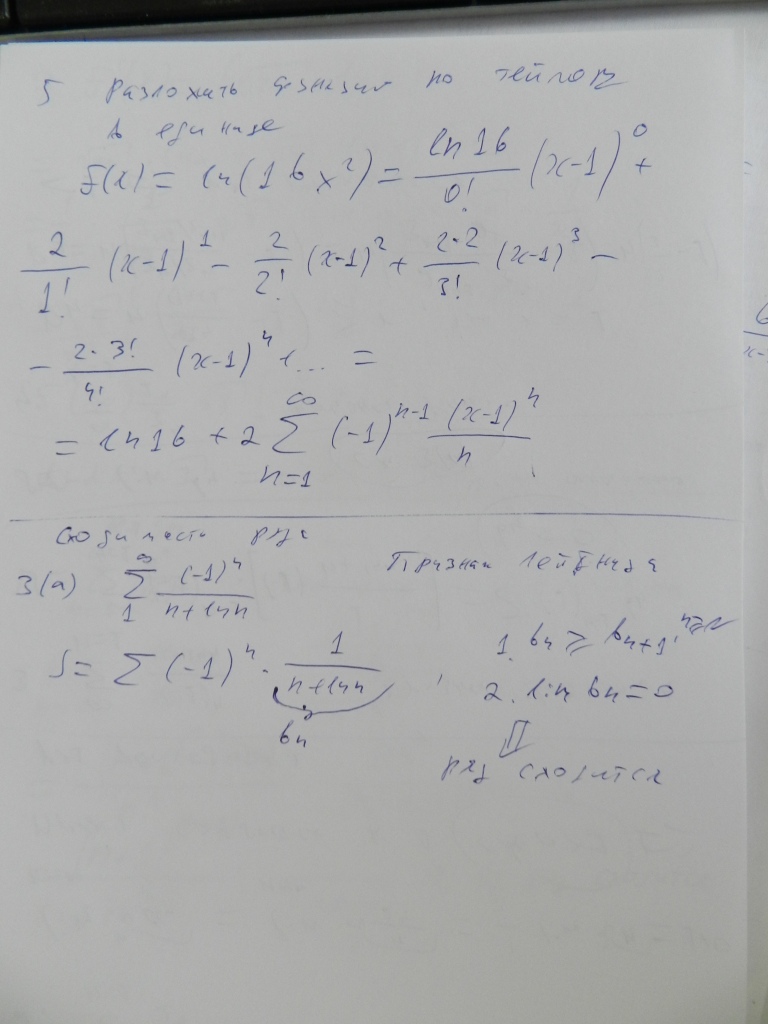 5 Разложить функцию по Тейлору
в единице
F(x) = ln(16x²) = ln16/0! (x-1)⁰ +
2/1! (x-1)¹ - 2/2! (x-1)² + 2·2/3! (x-1)³ -
- 2·3!/4! (x-1)⁴ + ... =
= ln16 + 2 ∑_{n=1}^{∞} (-1)^{n-1} (x-1)^n/n
Сходимость ряда
3(а) ∑_{1}^{∞} (-1)^n/(n+ln n)
Признак Лейбница
S = ∑ (-1)^n · 1/(n+ln n)
bn
1. bn ≥ bn+1,
2. lim bn = 0
⇓
ряд сходится